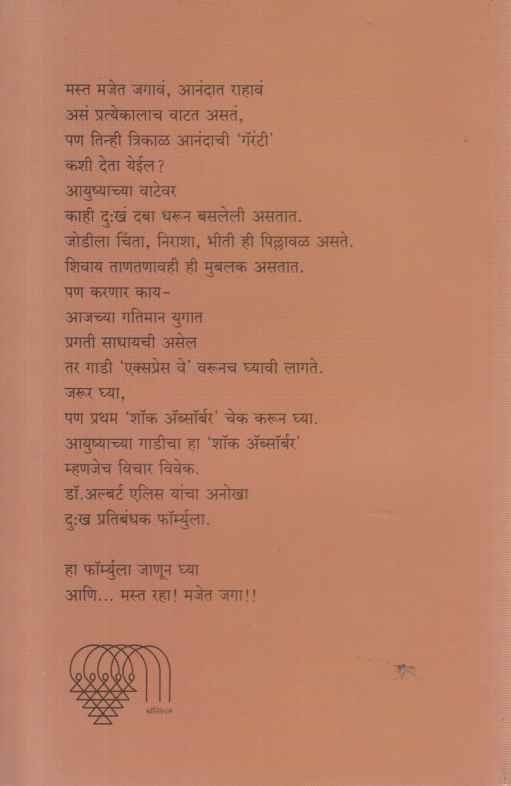 मस्त मजेत जगावं, आनंदात राहावं
असं प्रत्येकालाच वाटत असतं,
पण तिन्ही त्रिकाळ आनंदाची ‘गॅरंटी’
कशी देता येईल?
आयुष्याच्या वाटेवर
काही दु:खं दबा धरून बसलेली असतात.
जोडीला चिंता, निराशा, भीती ही पिल्लावळ असते.
शिवाय ताणतणावही ही मुबलक असतात.
पण करणार काय-
आजच्या गतिमान युगात
प्रगती साधायची असेल
तर गाडी ‘एक्सप्रेस वे’ वरूनच घ्यावी लागते.
जरूर घ्या,
पण प्रथम ‘शॉक ॲब्सॉर्बर’ चेक करून घ्या.
आयुष्याच्या गाडीचा हा ‘शॉक ॲब्सॉर्बर’
म्हणजेच विचार विवेक.
डॉ.अल्बर्ट एलिस यांचा अनोखा
दु:ख प्रतिबंधक फॉर्म्युला.
हा फॉर्म्युला जाणून घ्या
आणि... मस्त रहा! मजेत जगा!!